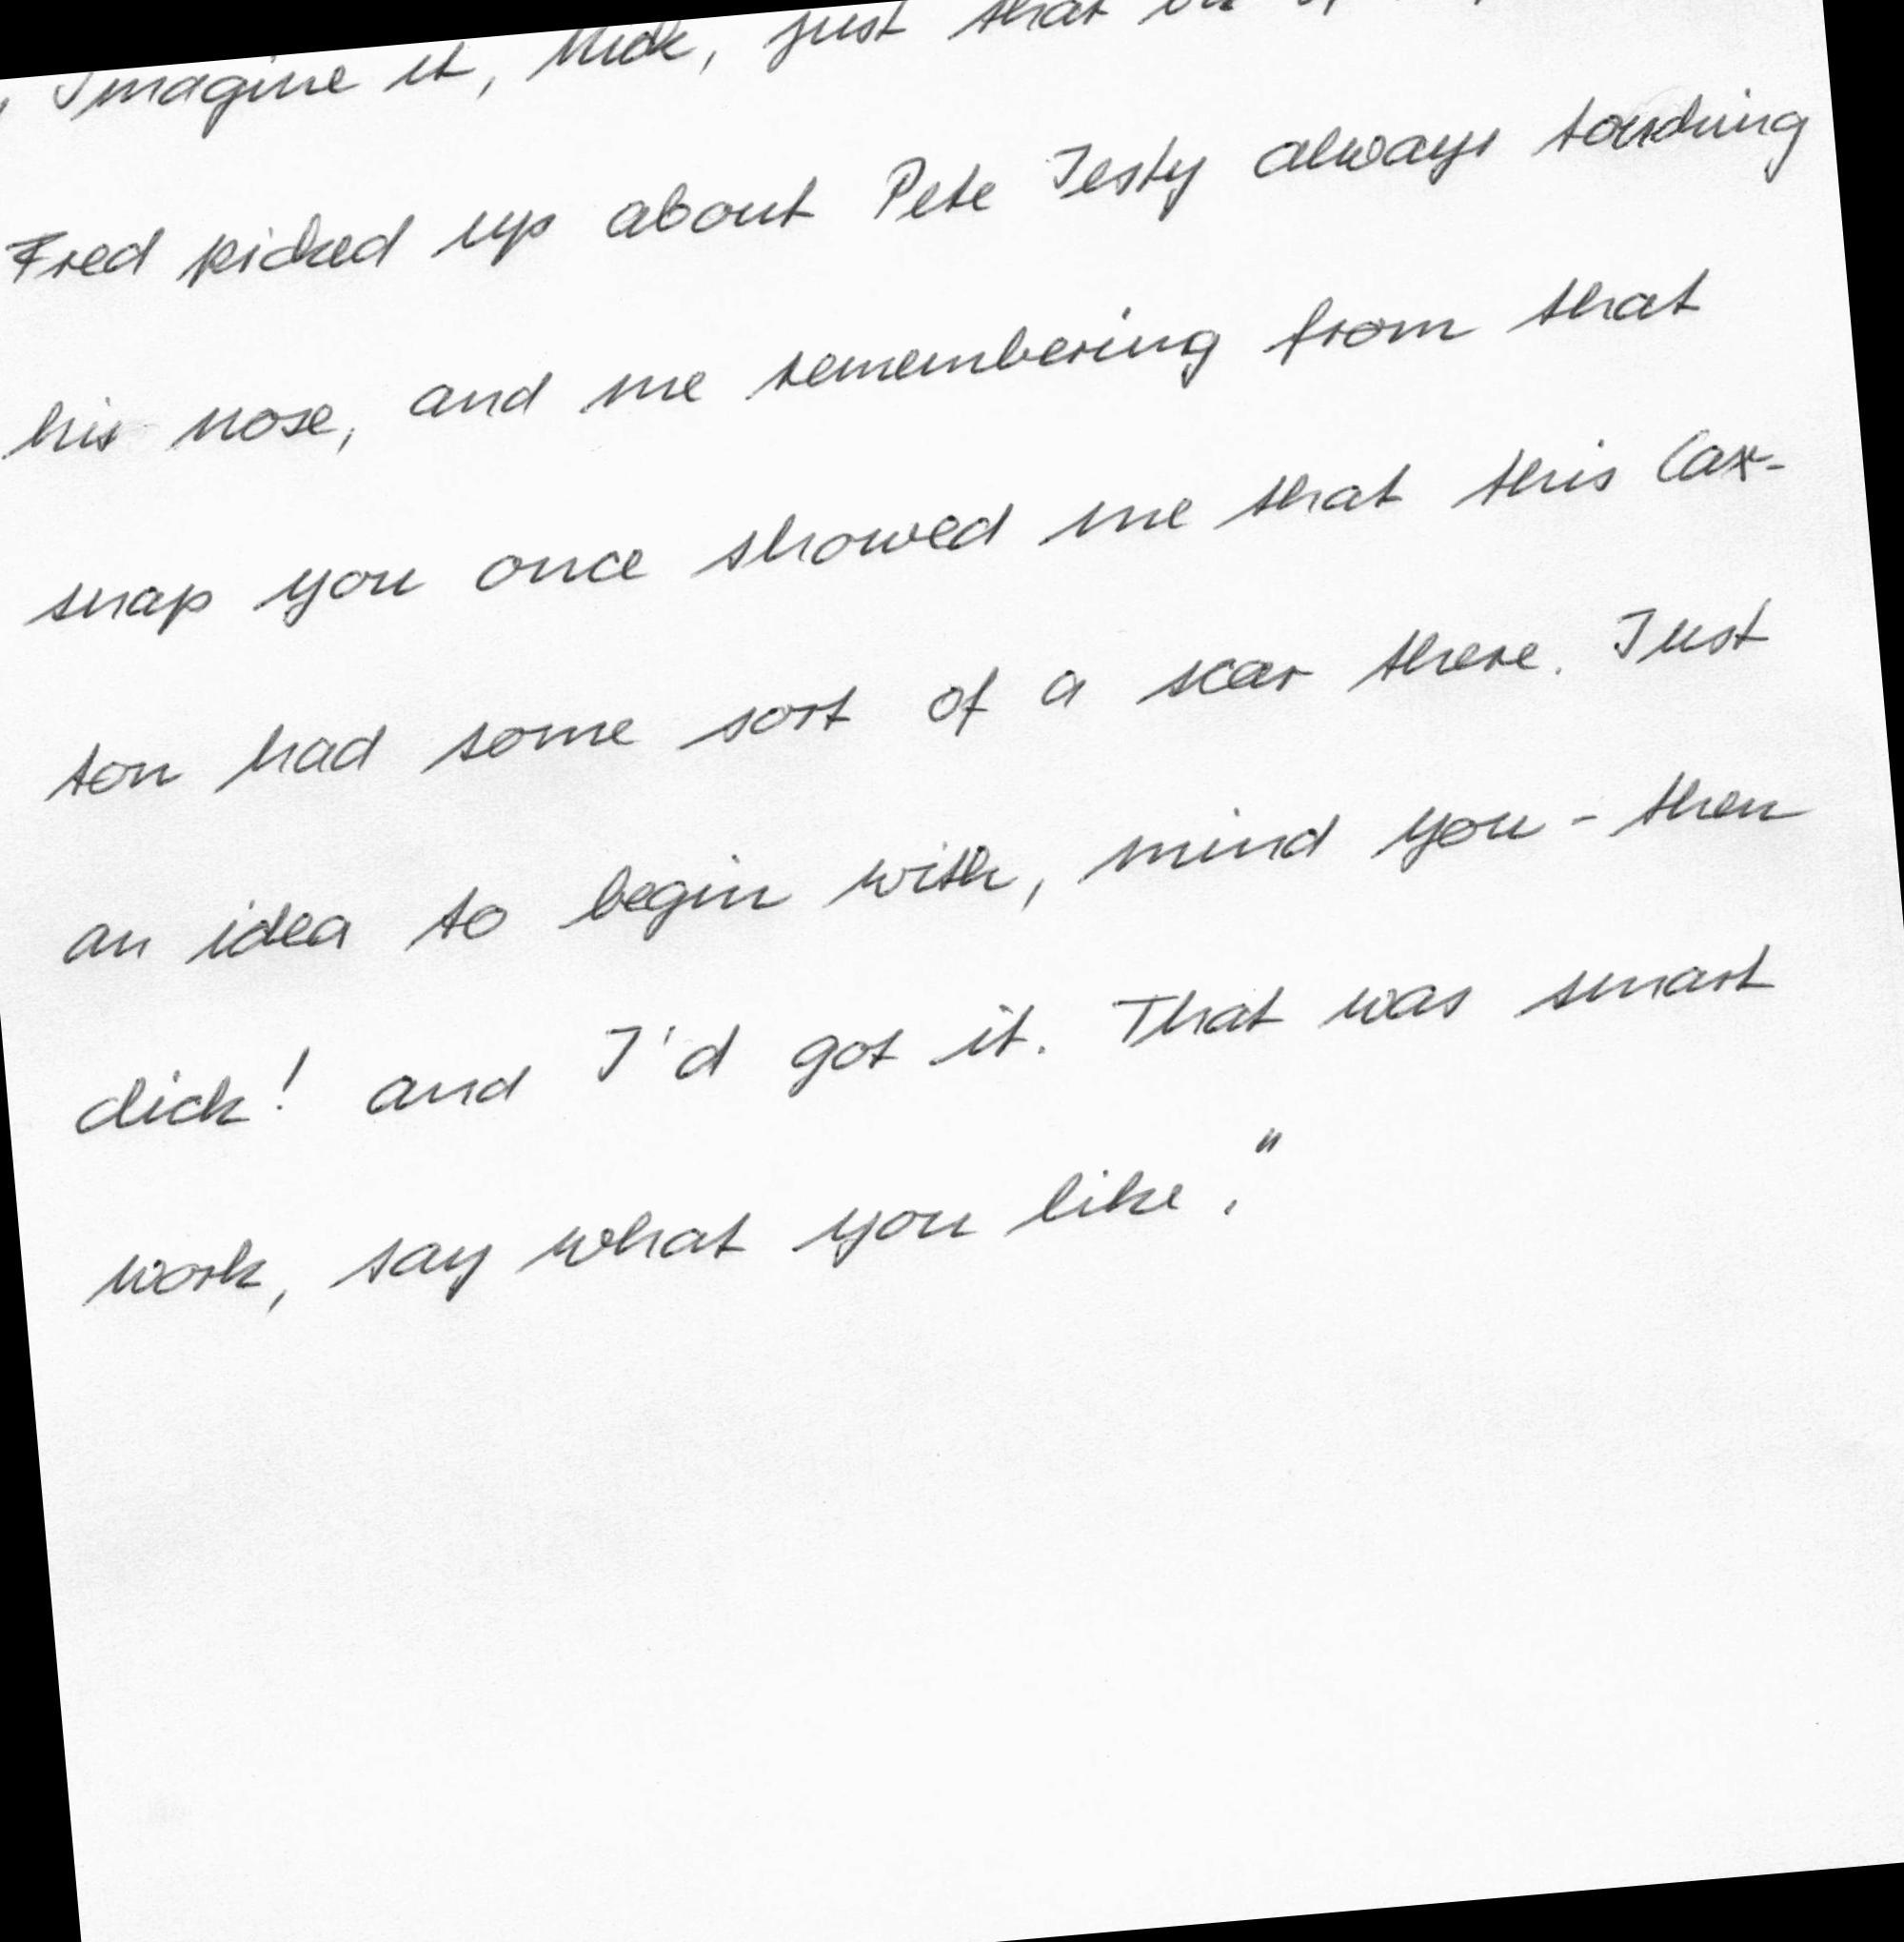 Imagine it, Mick, just that bit
Fred picked up about Pete Testy always touching
his nose, and me remembering from that
snap you once showed me that this Cax-
ton had some sort of a scar there. Just
an idea to begin with, mind you - then
click! and I'd got it. That was smart
work, say what you like."